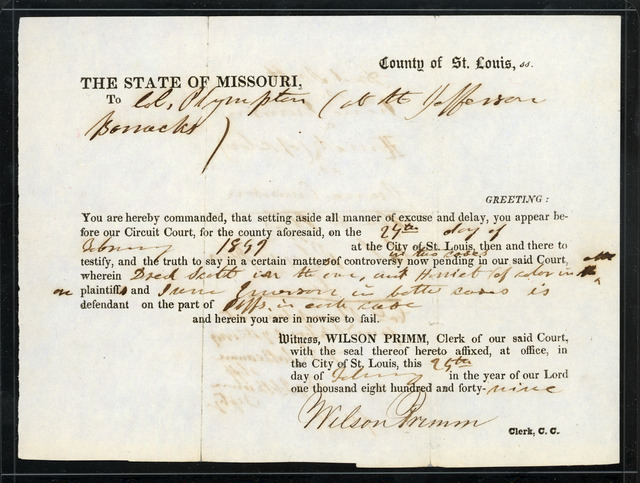 County of St. Louis, ss.
THE STATE OF MISSOURI,
To Col. Plympton (at the Jefferson
Barracks)
GREETING:
You are hereby commanded, that setting aside all manner of excuse and delay, you appear be-
fore our Circuit Court, for the county aforesaid, on the 24th day of
February 1849 at the City of St. Louis, then and there to
testify, and the truth to say in a certain matters of controversy now pending in our said Court,
in two cases
wherein Dred Scott is in the one, and Harriet of color in the
plaintiffs and Irene Emerson in both cases is
defendant on the part of Plffs. in each case
and herein you are in nowise to fail.
Witness, WILSON PRIMM, Clerk of our said Court,
with the seal thereof hereto affixed, at office, in
the City of St. Louis, this 24th
day of February in the year of our Lord
one thousand eight hundred and forty-nine
Wilson Primm
Clerk, C. C.